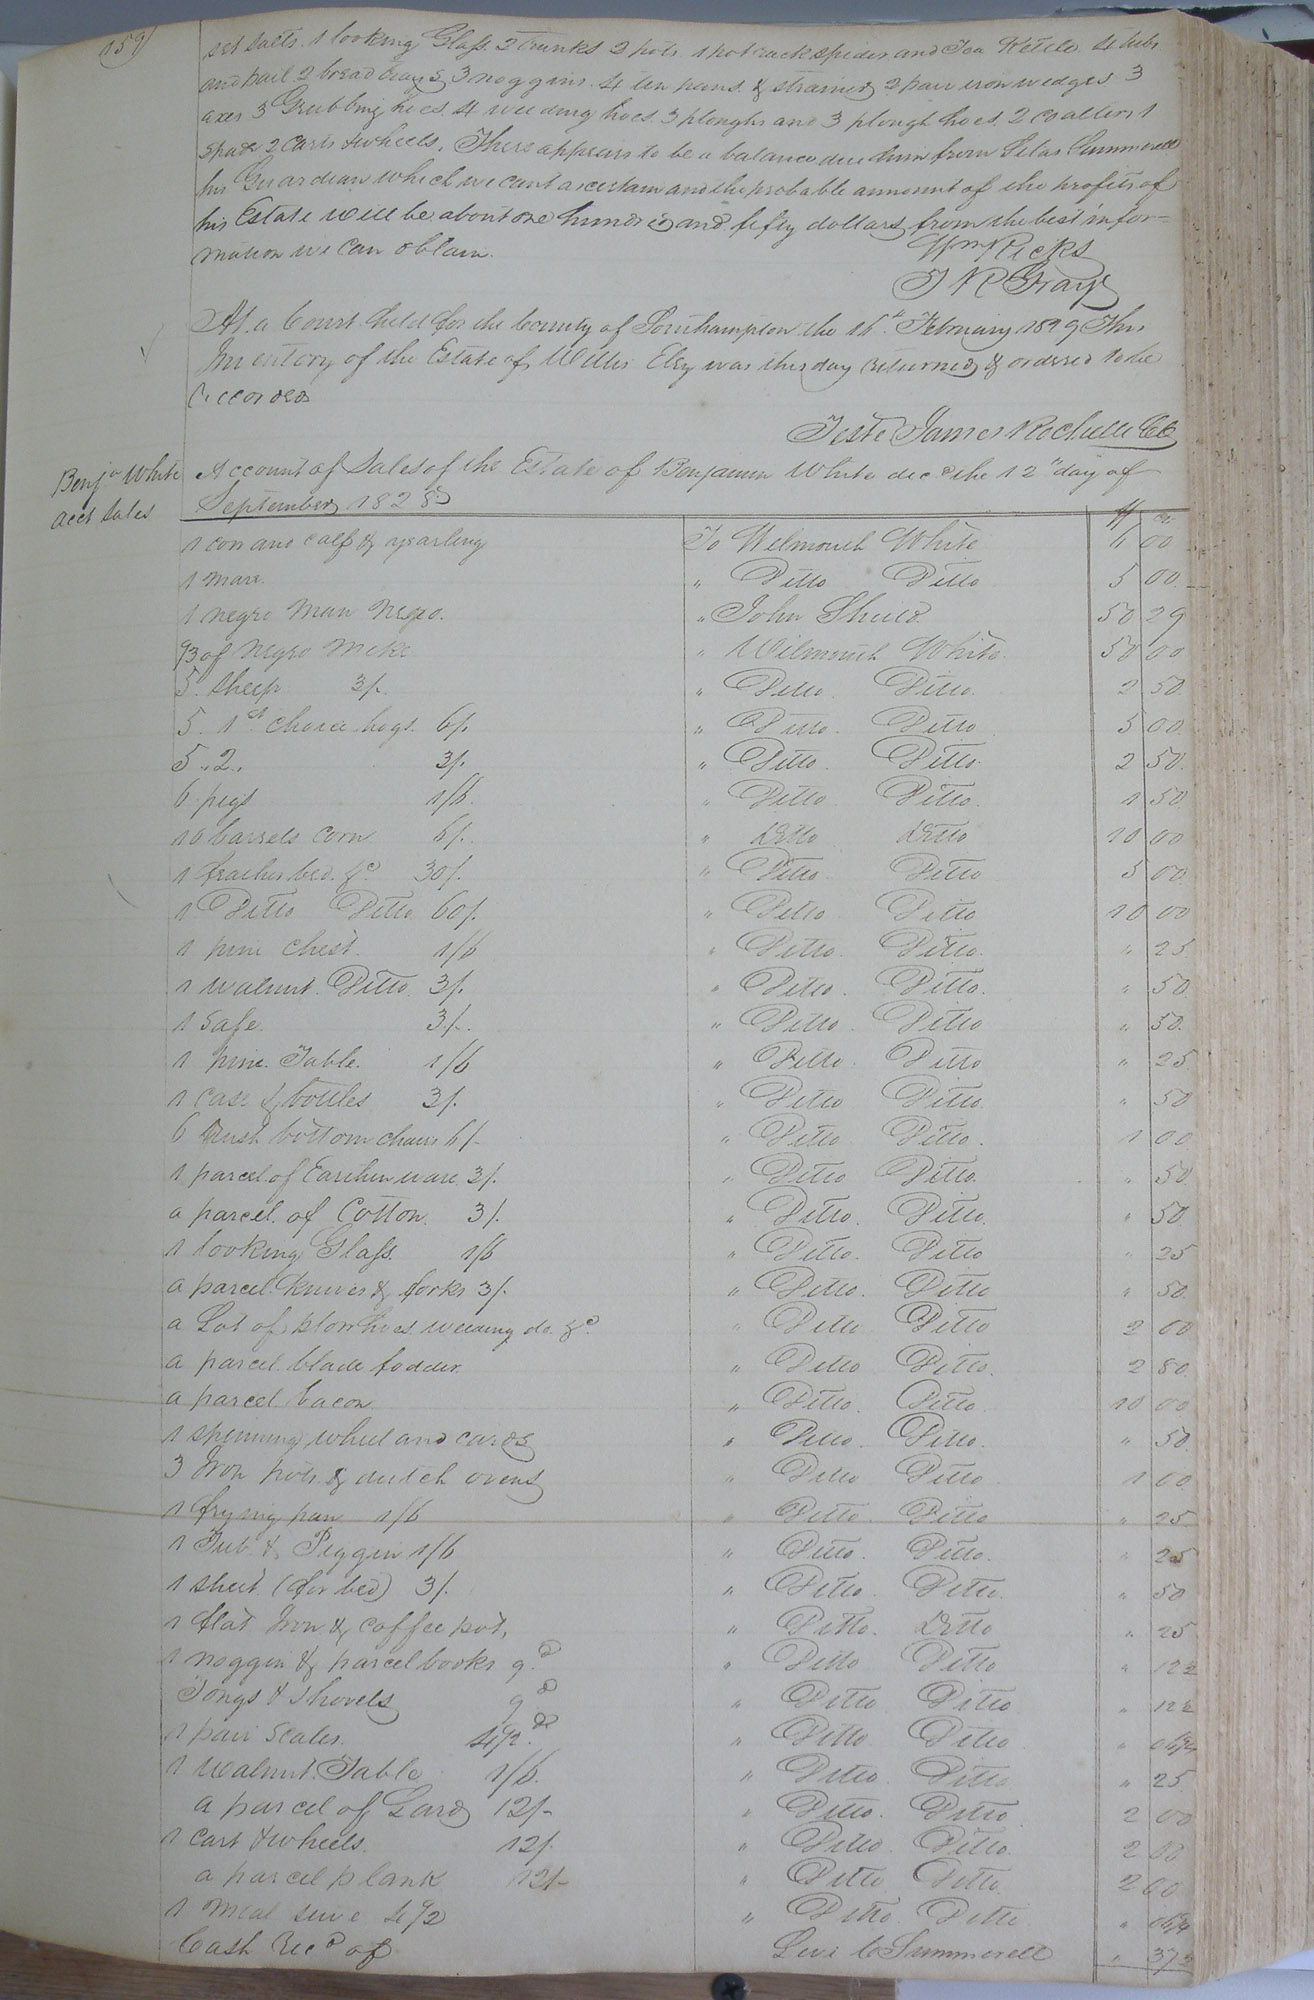 159
set salts 1 looking Glass 2 trunks 2 pots 1 pot rack spider and Tea Kettle 4 tubs
and pail 2 bread trays 3 noggins 4 tin pans & strainer 2 pair iron wedges 3
axes 3 Grubbing hoes 4 weeding hoes 3 ploughs and 3 plough hoes 2 coalters 1
spade 2 carts & wheels. There appears to be a balance due him from Silas Summerell
his Guardian which we cant ascertain and the probable amount of the profits of
his Estate will be about one hundred and fifty dollars from the best infor-
mation we can obtain.
Wm Ricks
J R Gray
At a Court held for the County of Southampton the 16th February 1829 This
Inventory of the Estate of Willis Eley was this day returned & ordered to be
recorded
Teste James Rochelle CC
Benja White
acct Sales
Account of Sales of the Estate of Benjamin White decd the 12th day of
September 1828
$ cts
1 cow and calf & yearling To Wilmouth White 6 00
1 mare " Ditto Ditto 5 00
1 negro Man " John Shield 50 29
of Negro Mike " Wilmouth White 50 00
5 sheep 3/. " Ditto Ditto 2 50
5. 1st choice hogs 6/. " Ditto Ditto 5 00
5. 2. 3/. " Ditto Ditto 2 50
6 pigs 1/6. " Ditto Ditto 1 50
10 barrels corn 6/. " Ditto Ditto 10 00
1 feather bed &c 30/. " Ditto Ditto 5 00
1 Ditto Ditto 60/. " Ditto Ditto 10 00
1 pine Chest 1/6 " Ditto Ditto " 25
1 walnut Ditto 3/. " Ditto Ditto " 50
1 Safe 3/. " Ditto Ditto " 50
1 pine Table 1/6 " Ditto Ditto " 25
1 case & bottles 3/. " Ditto Ditto " 50
6 Rush bottom chairs 6/- " Ditto Ditto 1 00
1 parcel of Earthen ware 3/. " Ditto Ditto " 50
a parcel of Cotton 3/. " Ditto Ditto " 50
1 looking Glass 1/6 " Ditto Ditto " 25
a parcel Knives & forks 3/. " Ditto Ditto " 50
a Lot of plow hoes weeding do &c " Ditto Ditto 2 00
a parcel blade fodder " Ditto Ditto 2 50
a parcel bacon " Ditto Ditto 10 00
1 spinning wheel and cards " Ditto Ditto " 50
3 Iron pots & dutch ovens " Ditto Ditto 1 00
1 frying pan 1/6 " Ditto Ditto " 25
1 Tub & Piggin 1/6 " Ditto Ditto " 25
1 sheet (for bed) 3/. " Ditto Ditto " 50
1 flat Iron & coffee pot, " Ditto Ditto " 25
1 noggin & parcel books 9d " Ditto Ditto " 12½
Tongs & shovels 9d " Ditto Ditto " 12½
1 pair Scales 4½d " Ditto Ditto " 06¼
1 walnut Table 1/6 " Ditto Ditto " 25
a parcel of Lard 12/- " Ditto Ditto 2 00
1 cart & wheels 12/. " Ditto Ditto 2 00
a parcel plank 12/- " Ditto Ditto 2 00
1 meal sieve 4½ " Ditto Ditto " 06¼
Cash Recd of Levi C Summerell " 37½